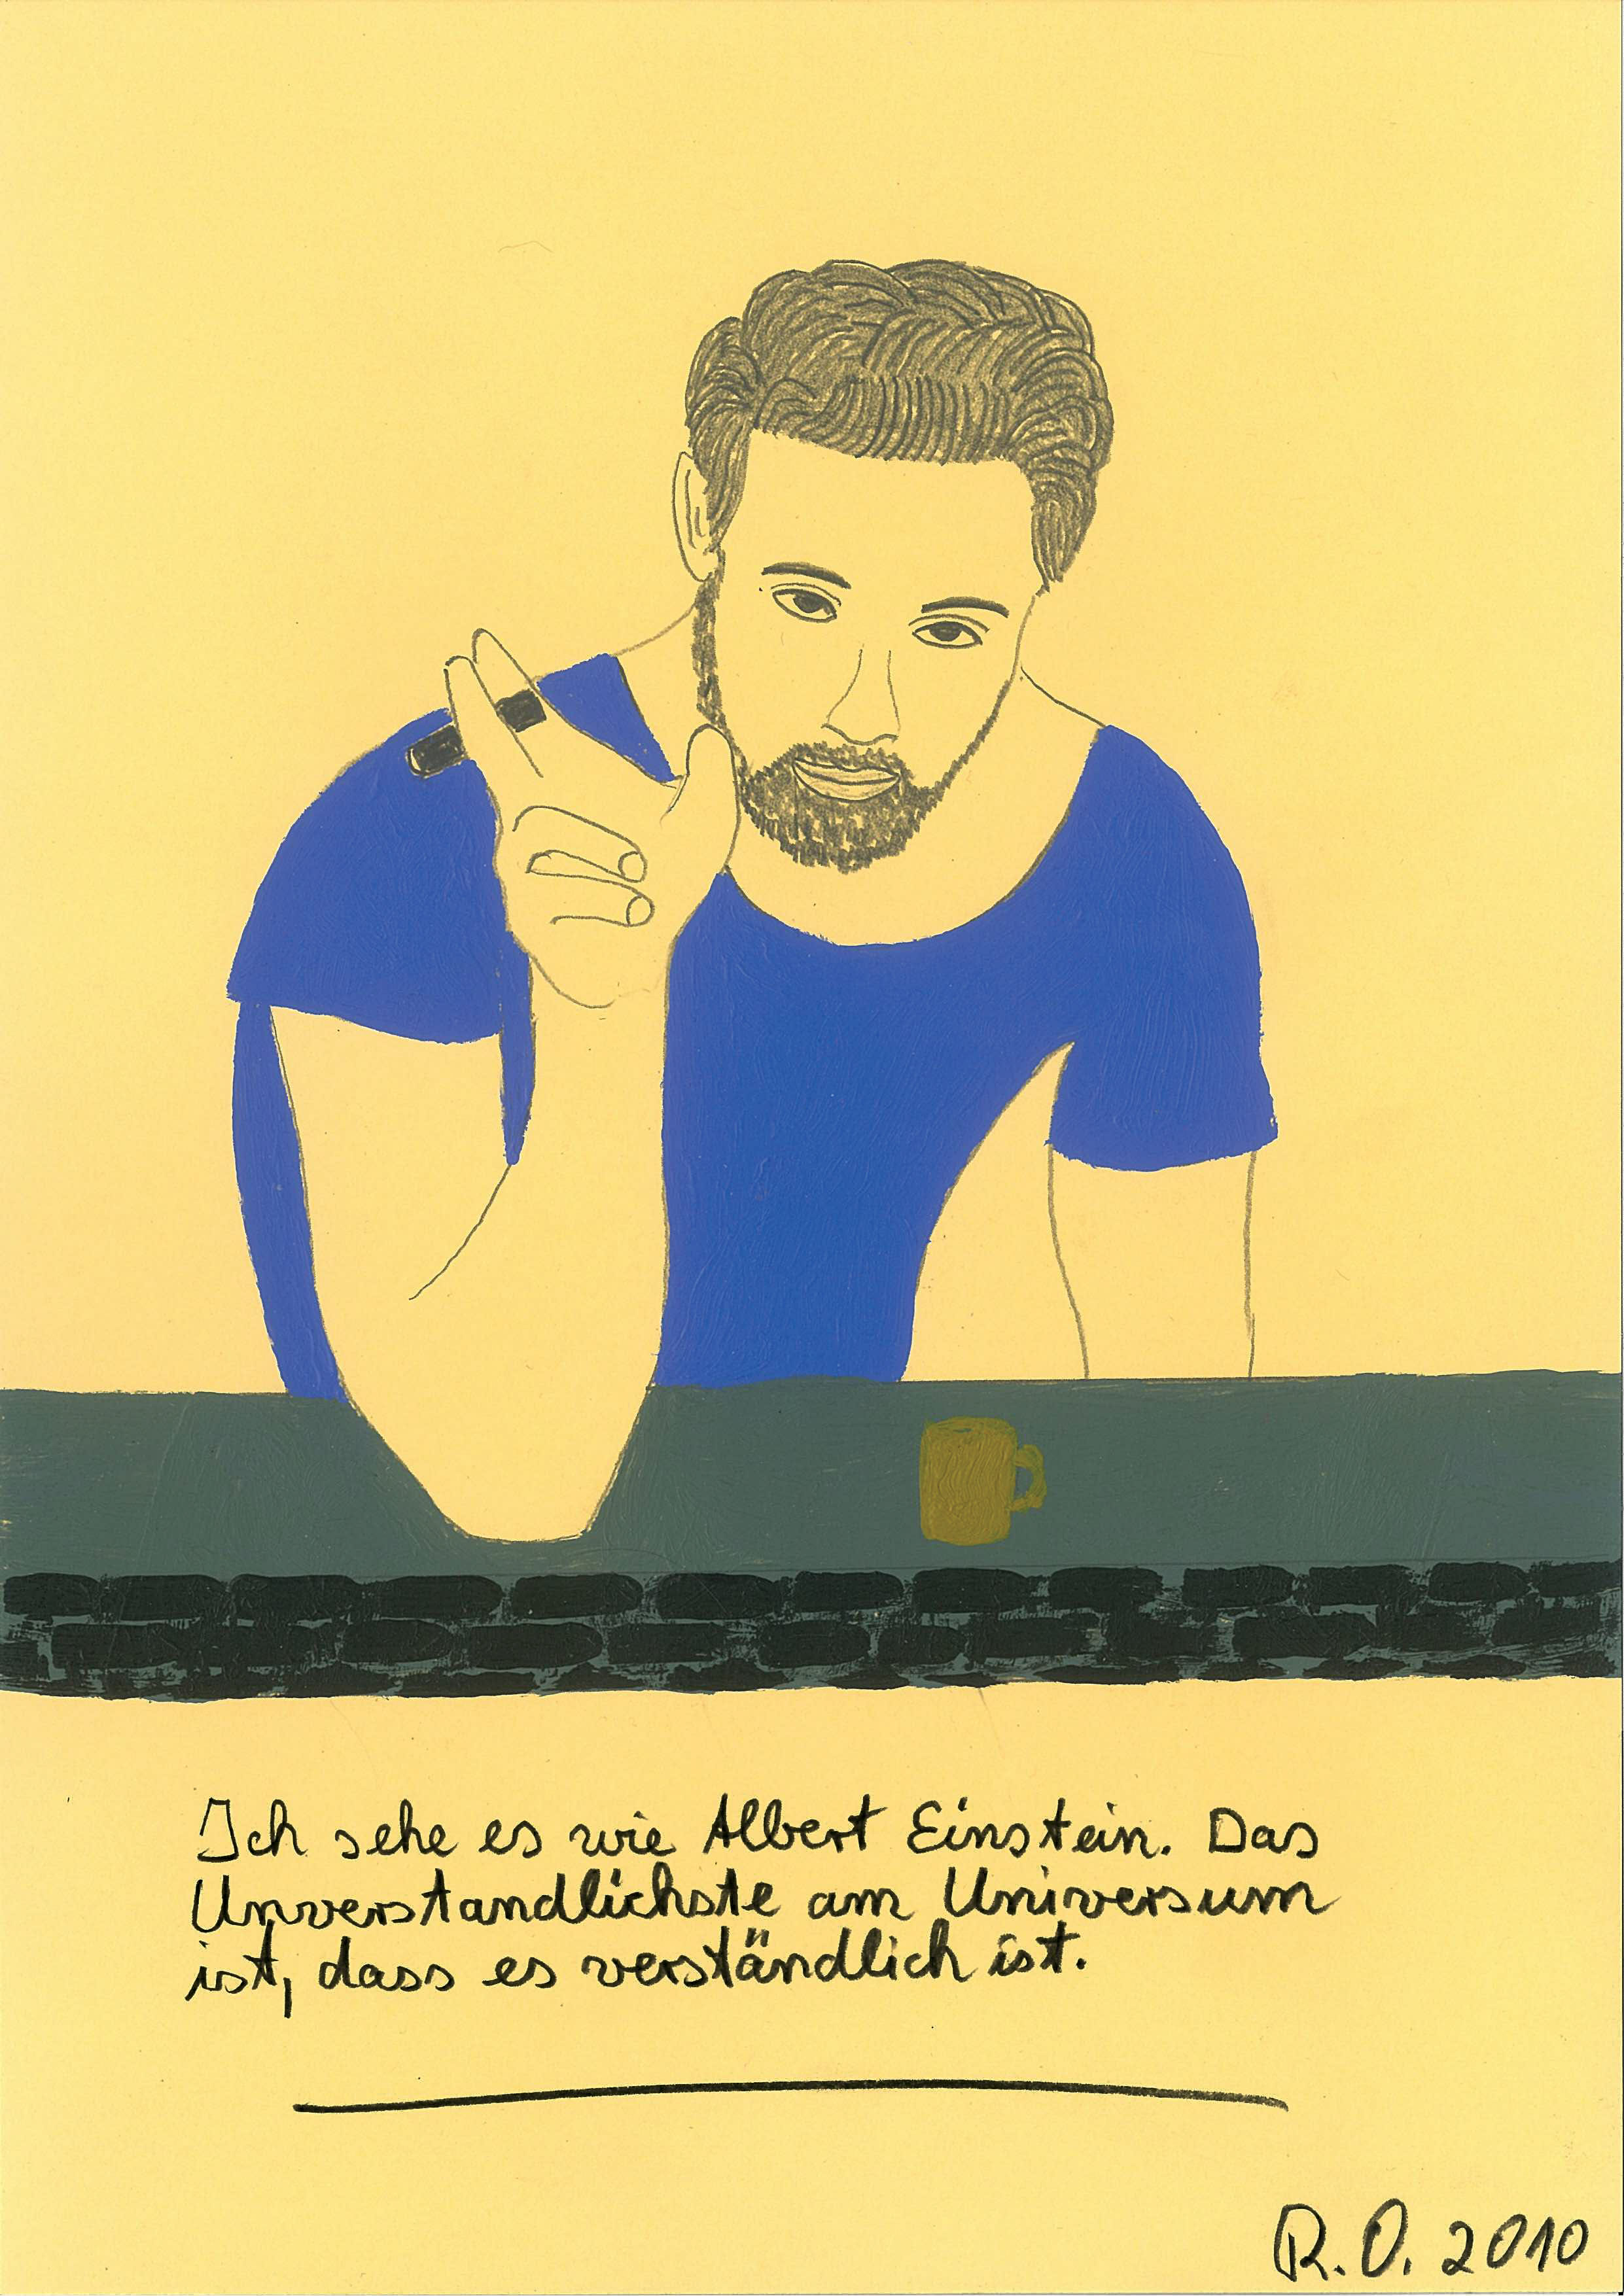 Ich sehe es wie Albert Einstein. Das
Unverstandlichste am Universum
ist, dass es verständlich ist.
R.O. 2010